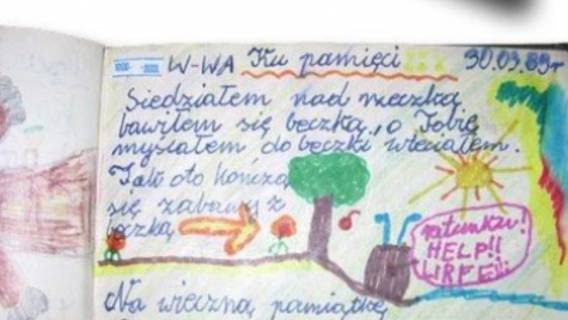 W-WA Ku pamięci 30.03.89r
Siedziałem nad rzeczką
bawiłem się beczką, o Tobie
myślałem do beczki wleciałem.
Tak oto kończą
się zabawy z
beczką
ratunku!
HELP!!
LIRFE!!!
Na wieczną pamiątkę